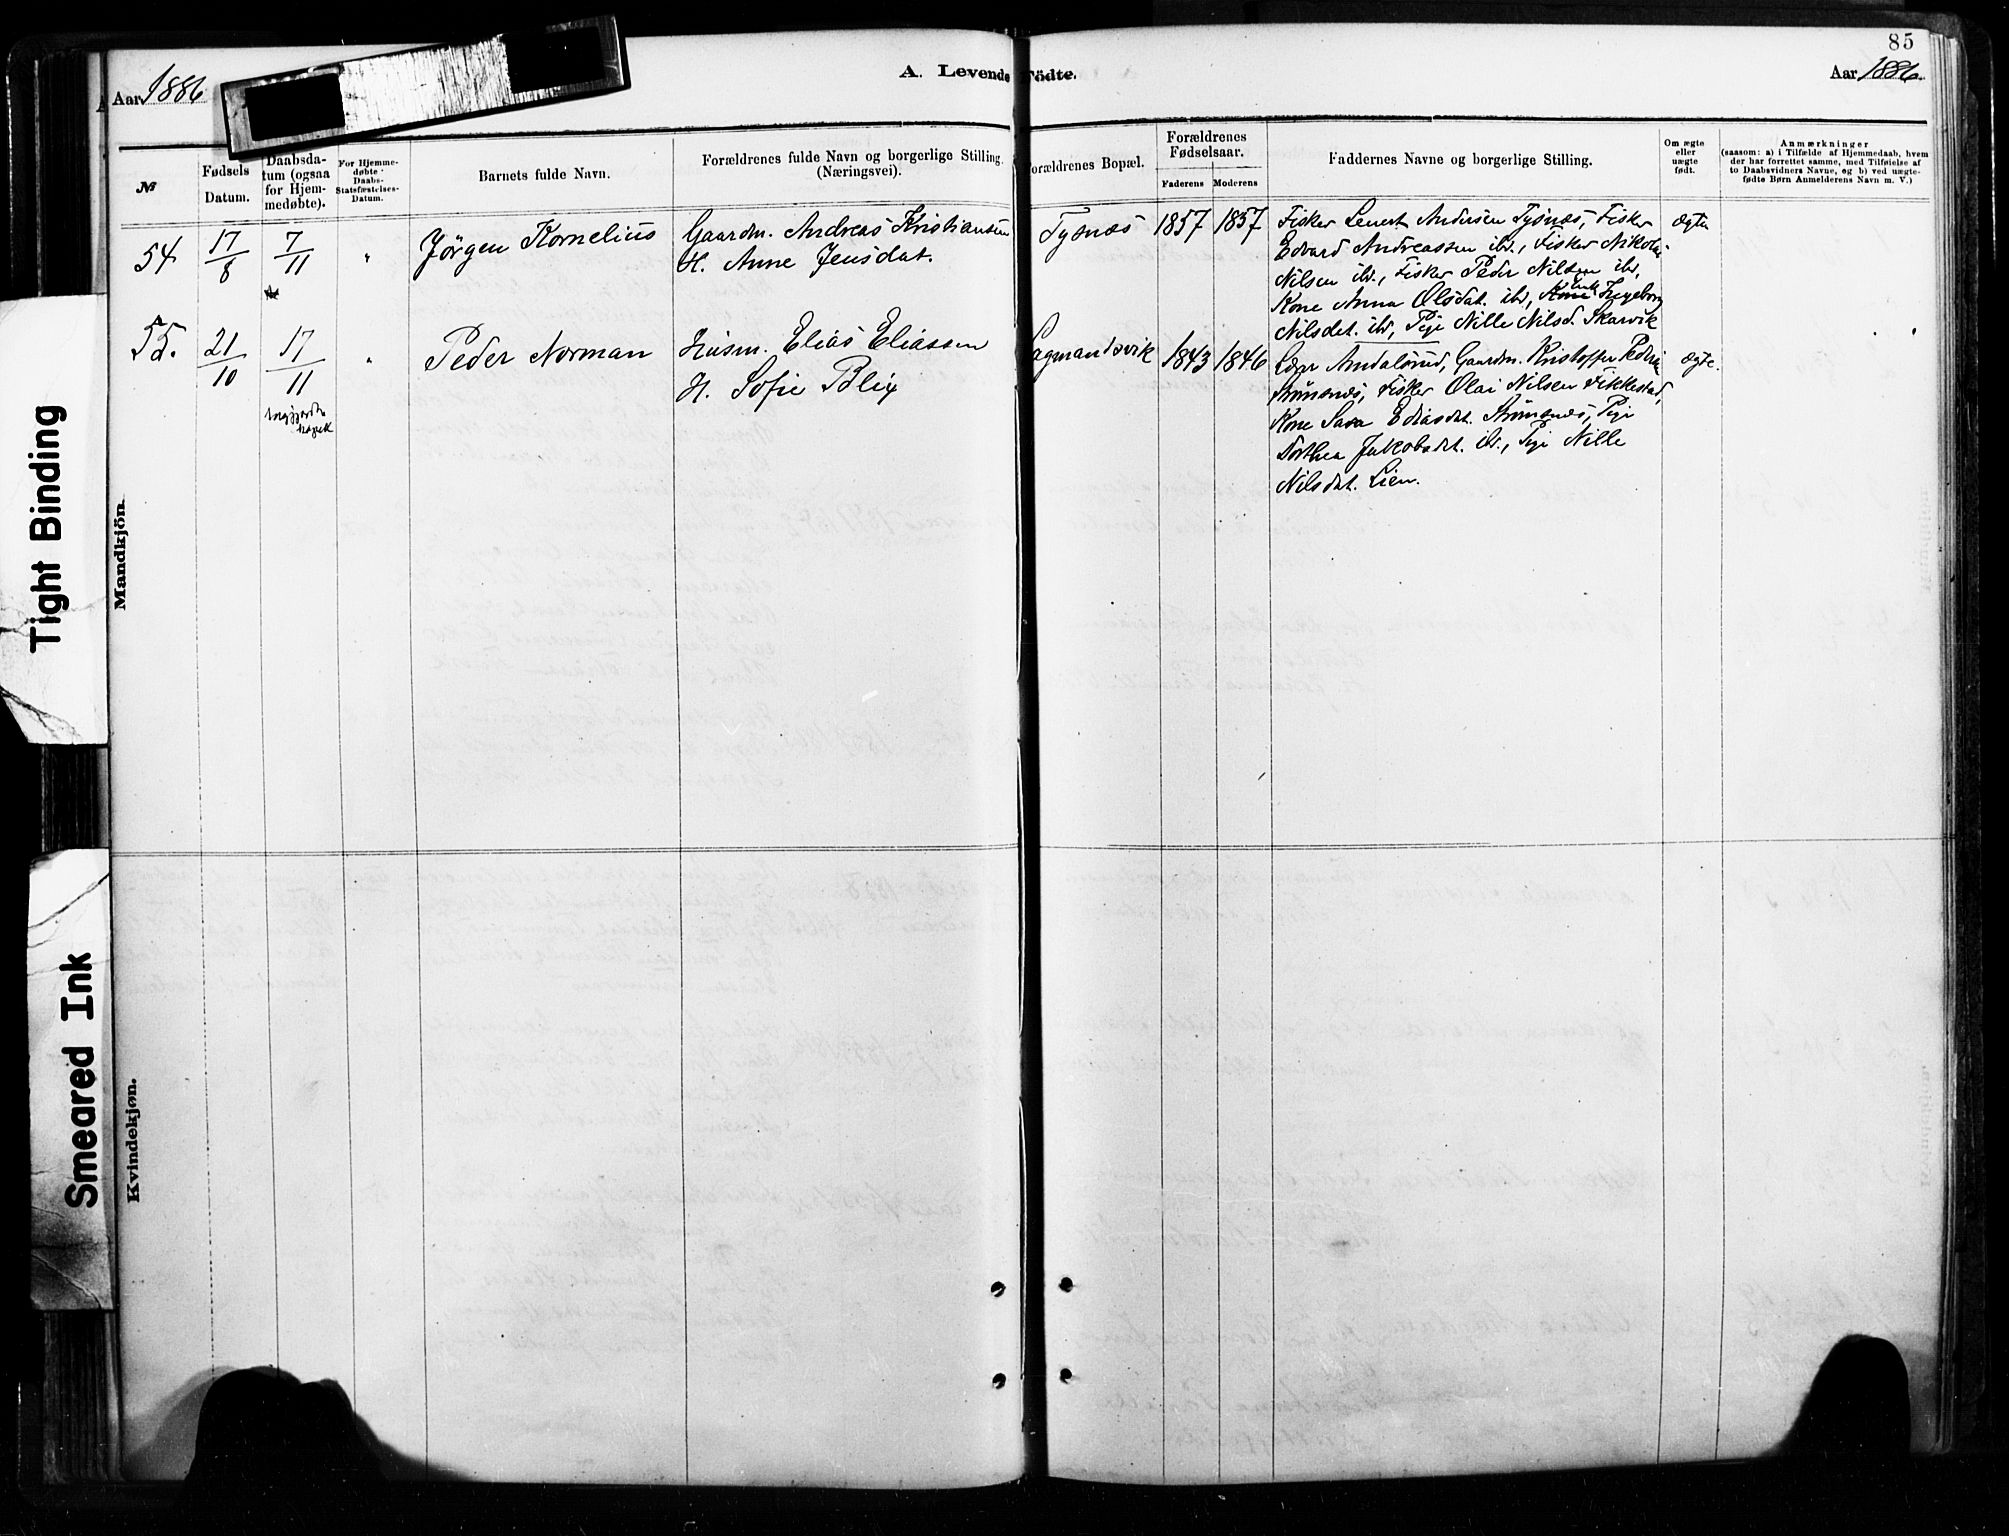 85
Aar 1886
A. Levende Fødte.
Aar 1886.
№
Fødsels Datum.
Daabsdatum (ogsaa for Hjemmedøbte).
For Hjemmedøbte · Daabs-Statsfæstelses-Datum.
Barnets fulde Navn.
Forældrenes fulde Navn og borgerlige Stilling. (Næringsvei).
Forældrenes Bopæl.
Forældrenes Fødselsaar.
Faderens Moderens
Faddernes Navne og borgerlige Stilling.
Om ægte eller uægte født.
Anmærkninger
(saasom: a) i Tilfælde af Hjemmedaab, hvem
der har forrettet samme, med Tilføielse af
to Daabsvidners Navne, og b) ved uægte-
fødte Børn Anmelderens Navn m. V.)
Mandkjön.
54 17/8 7/11 " Jörgen Kornelius
Gaardm. Andreas Kristiansen
H. Anne Jensdat.
Tysnæs 1857 1857
Fisker Lenert Andersen Tysnæs, Fisker
Edvard Andreassen ibd., Fisker Nikolai
Nilsen ibd., Fisker Peder Nilsen ibd,
Kone Anna Olsdat. ibd, Enk Ingeborg
Nilsdat. ibd, Pige Nille Nilsd. Skarvik
ægte
55. 21/10 17/11 " Peder Norman
kapel
Husm. Elias Eliassen
H. Sofie Blix
Sagmandsvik 1843 1846
Gaardm. Kristoffer Pedersen
Strömsnæs, Fisker Olai Nilsen Fikkestad,
Kone Sara Eliasdat. Strömsnæs, Pige
Dorthea Jakobsdat. ibd., Pige Nille
Nilsdat. Lien.
ægte.
Kvindekjøn.
Tight Binding
Smeared Ink